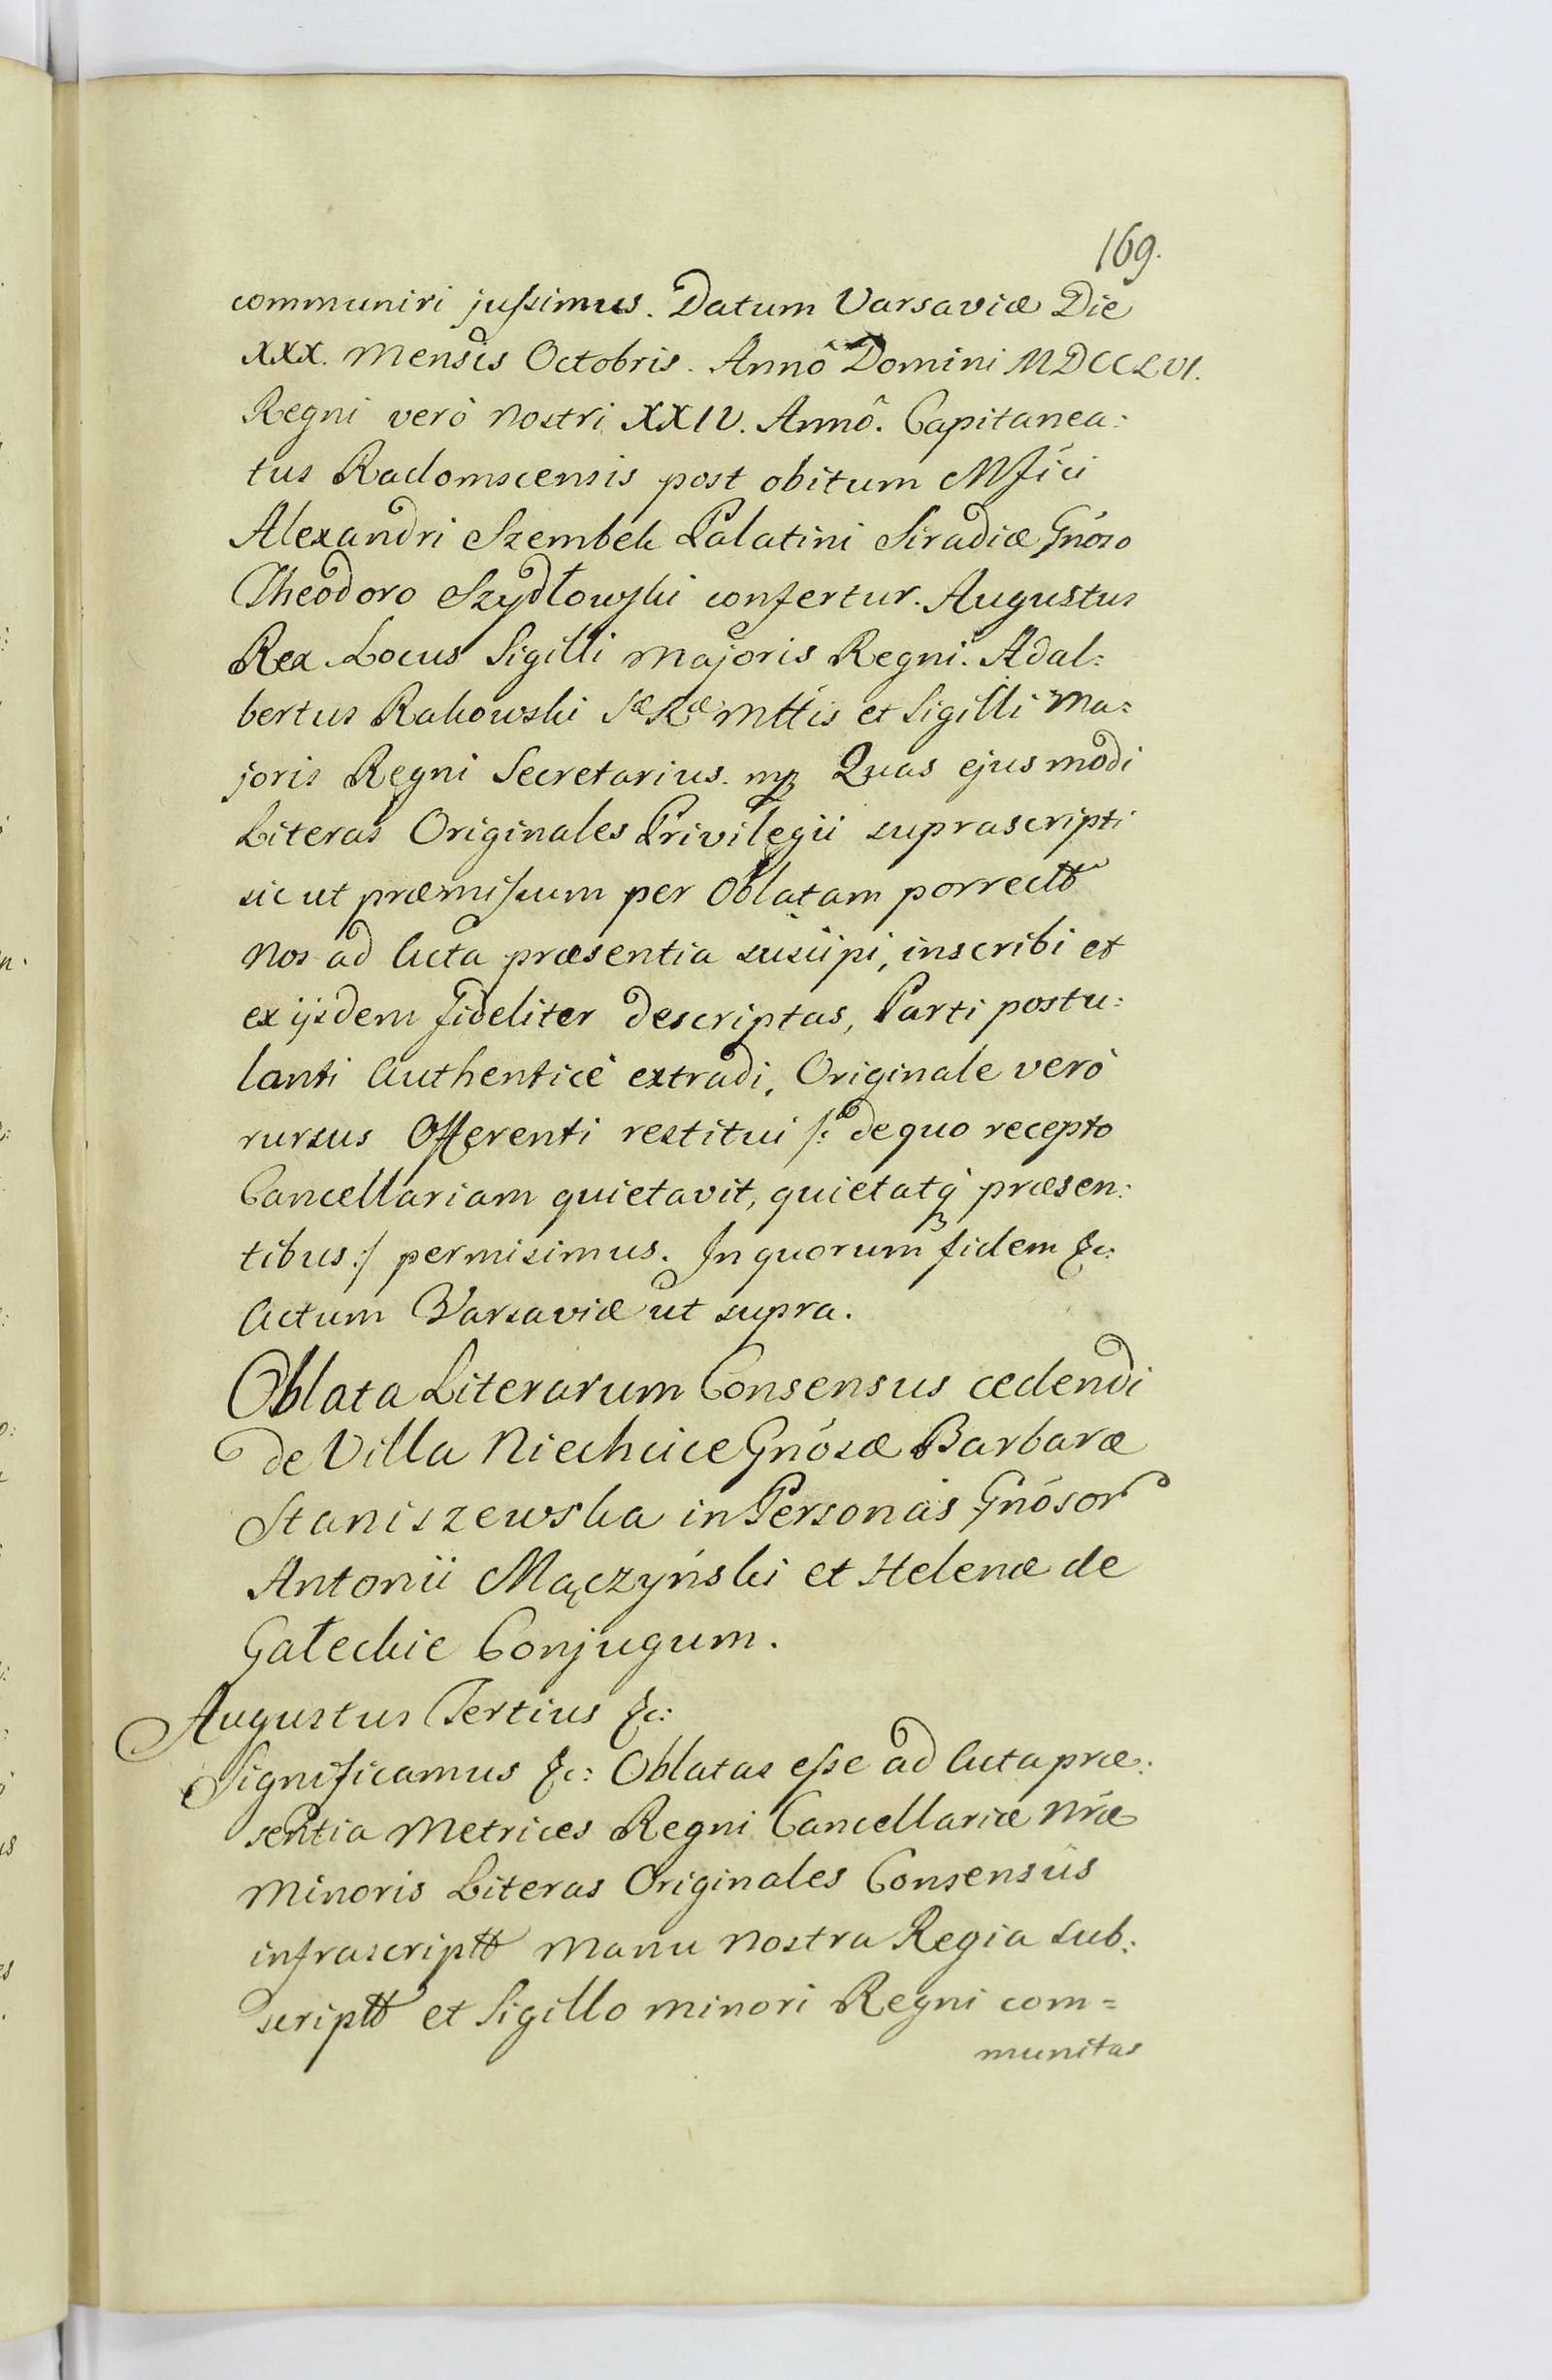 169.
communiri jussimus. Datum Varsaviæ Die
XXX. Mensis Octobris. Annô Domini MDCCLVI.
Regni verò Nostri XXIV. Annô. Capitanea:
tus Radomscensis post obitum Mfici
Alexandri Szembek Palatini Siradiæ Gnoso
Theodoro Szydłowski confertur. Augustus
Rex Locus Sigilli Majoris Regni. Adal:
bertus Rakowski Sæ Ræ Mttis et Sigilli Ma:
joris Regni Secretarius. mp Quas ejusmodi
Literas Originales Privilegii suprascripti
sic ut præmissum per Oblatam porrectt
Nos ad Acta præsentia suscipi, inscribi et
ex ijsdem fideliter descriptas, Parti postu:
lanti authenticè extradi, Originale verò
rursus Offerenti restitui /: de quo recepto
Cancellariam quietavit, quietatq præsen:
tibus :/ permisimus. In quorum fidem &c:
Actum Varsaviæ ut supra.
Oblata Literarum Consensus cedendi
de Villa Niechcice Gnosæ Barbaræ
Staniszewska in Personas Gnosor
Antonii Mączyński et Helenæ de
Gałeckie Conjugum.
Augustus Tertius &c:
Significamus &c: Oblatas esse ad Acta præ:
sentia Metrices Regni Cancellariæ Nræ
Minoris Literas Originales Consensûs
infrascriptt Manu Nostra Regia sub:
scriptt et Sigillo minori Regni com=
munitas